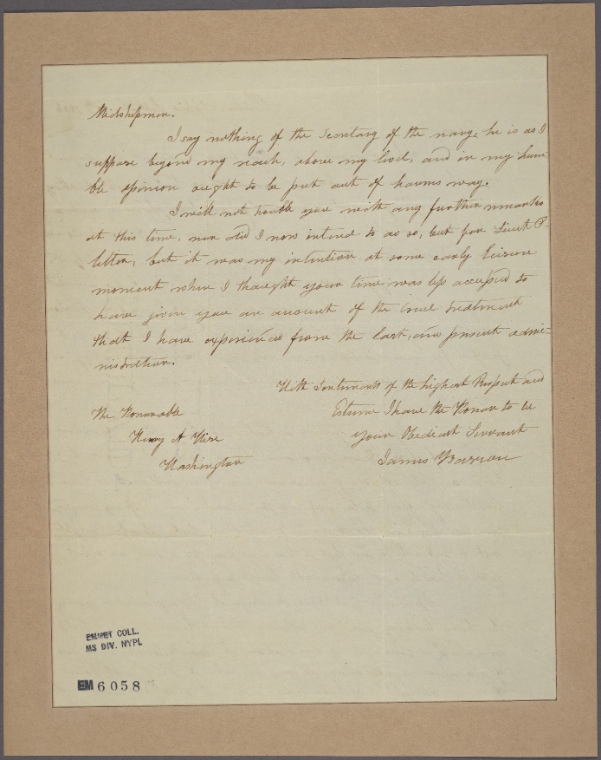 Midshipmen.
I say nothing of the Secretary of the navy, he is as I
suppose beyond my reach, above my level, and in my hum
ble opinion ought to be put out of harms way.
I will not trouble you with any further remarks
at this time, nor did I now intend to do so, but for Lieut P
letter, but it was my intention at some early leisure
moment when I thought your time was less occupied to
have given you an account of the cruel treatment
that I have experienced from the last, and present admi-
nistration.
With Sentiments of the highest Respect and
Esteem I have the Honor to be
your Obedient Servant
James Barron
The Honorable
Henry A Wise
Washington
EMMET COLL.
MS DIV. NYPL
EM 6058